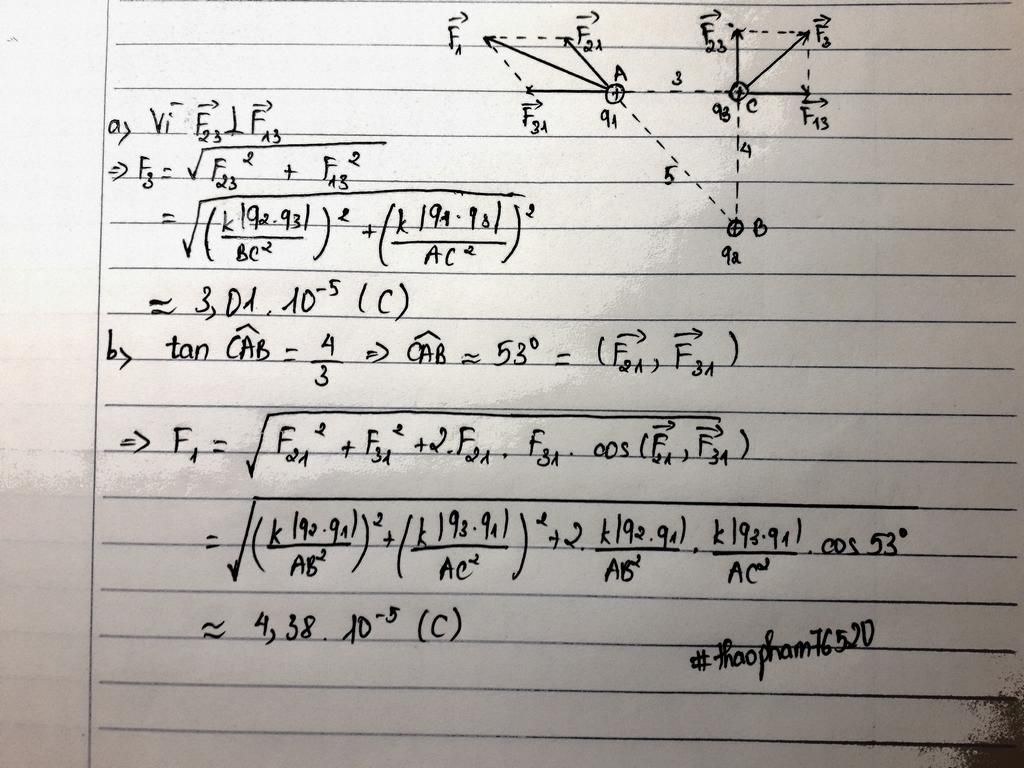 F₁→ F₂₁→ F₂₃→ F₃→
A 3 C
F₃₁→ q₁ q₃ F₁₃→
4
5
B
q₂
a) Vì F₂₃→ ⊥ F₁₃→
⇒ F₃ = √(F₂₃² + F₁₃²)
= √((k|q₂.q₃|/BC²)² + (k|q₁.q₃|/AC²)²)
≈ 3,01.10⁻⁵ (C)
b) tan CAB^ = 4/3 ⇒ CAB^ ≈ 53° = (F₂₁→, F₃₁→)
⇒ F₁ = √(F₂₁² + F₃₁² + 2.F₂₁.F₃₁.cos(F₂₁→, F₃₁→))
= √((k|q₂.q₁|/AB²)² + (k|q₃.q₁|/AC²)² + 2.k|q₂.q₁|/AB².k|q₃.q₁|/AC².cos 53°)
≈ 4,38.10⁻⁵ (C)
#thaopham76520